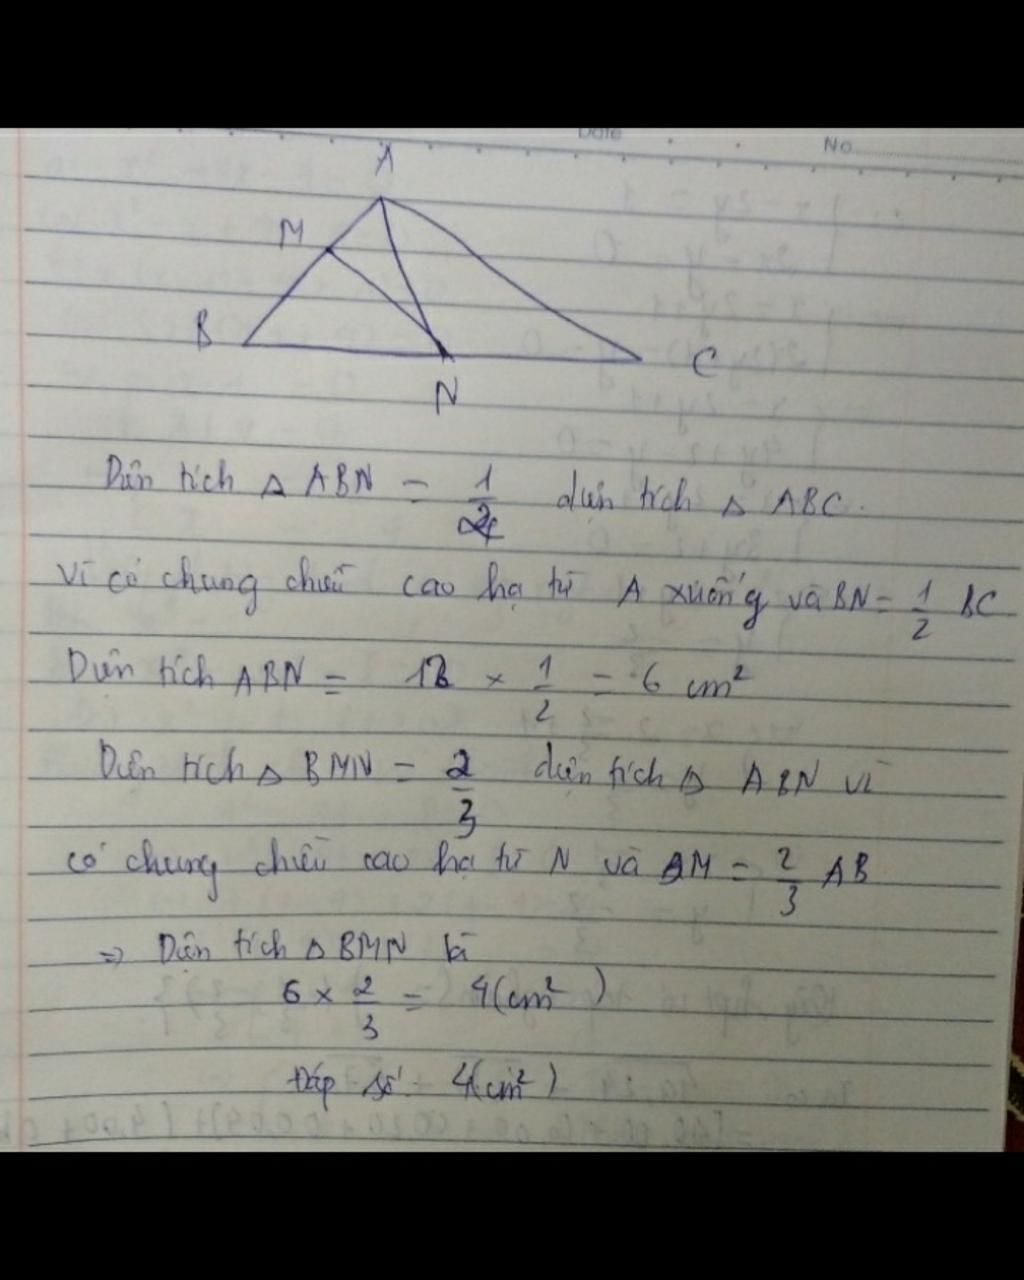 Date
No.
A
M
B
C
N
Diện tích Δ ABN = 1/2 diện tích Δ ABC.
Vì có chung chiều cao hạ từ A xuống và BN = 1/2 BC
Diện tích ABN = 12 × 1/2 = 6 cm²
Diện tích Δ BMN = 2/3 diện tích Δ ABN vì
có chung chiều cao hạ từ N và BM = 2/3 AB
=> Diện tích Δ BMN là
6 × 2/3 = 4(cm²)
Đáp số: 4(cm²)